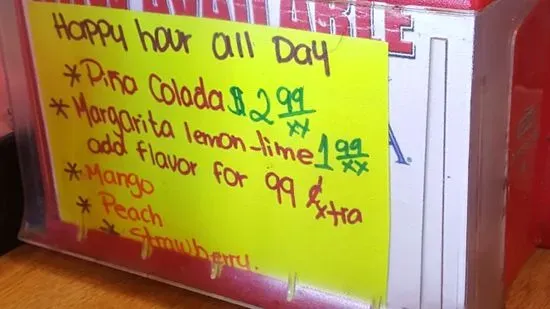 AVAILABLE
Happy hour all Day
* Piña Colada $2 99/xx
* Margarita lemon-lime 1 99/xx
add flavor for 99 ¢ xtra
* Mango
* Peach
* Strawberry.
A.